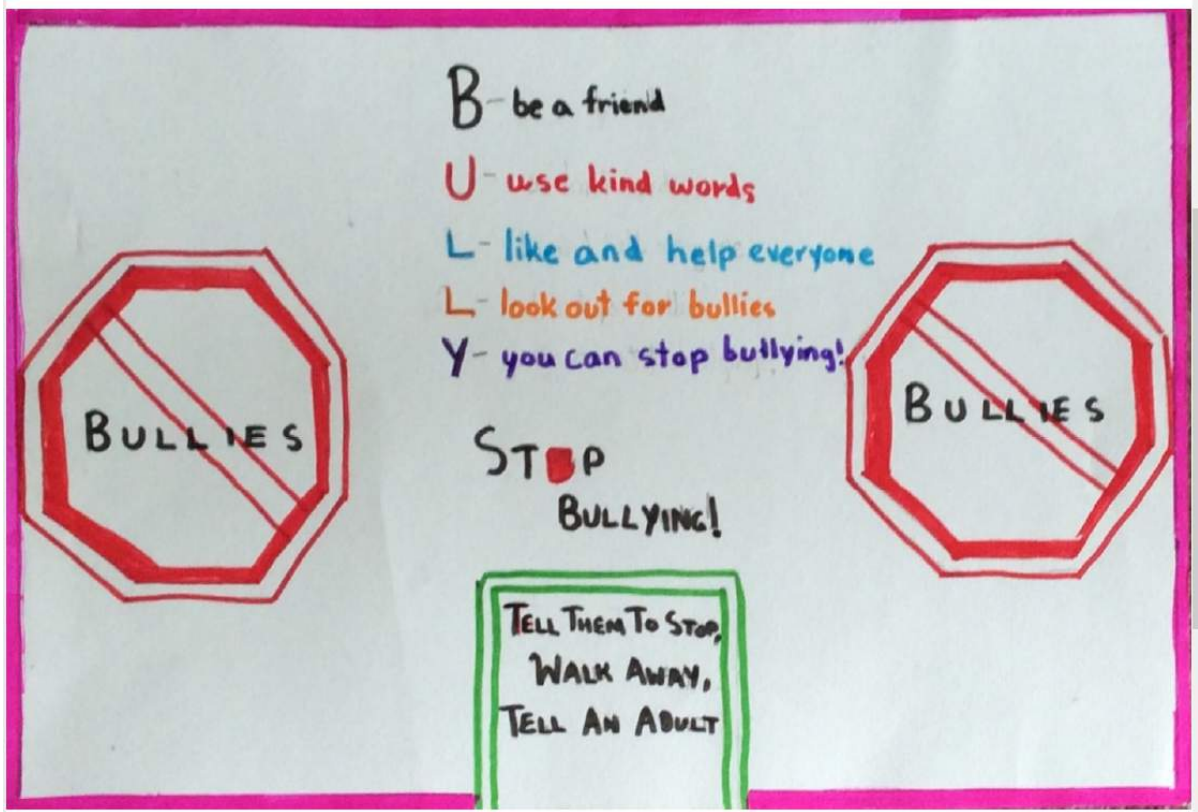 B - be a friend
U - use kind words
L - like and help everyone
L - look out for bullies
Y - you can stop bullying!
BULLIES
BULLIES
STOP
BULLYING!
TELL THEM TO STOP,
WALK AWAY,
TELL AN ADULT